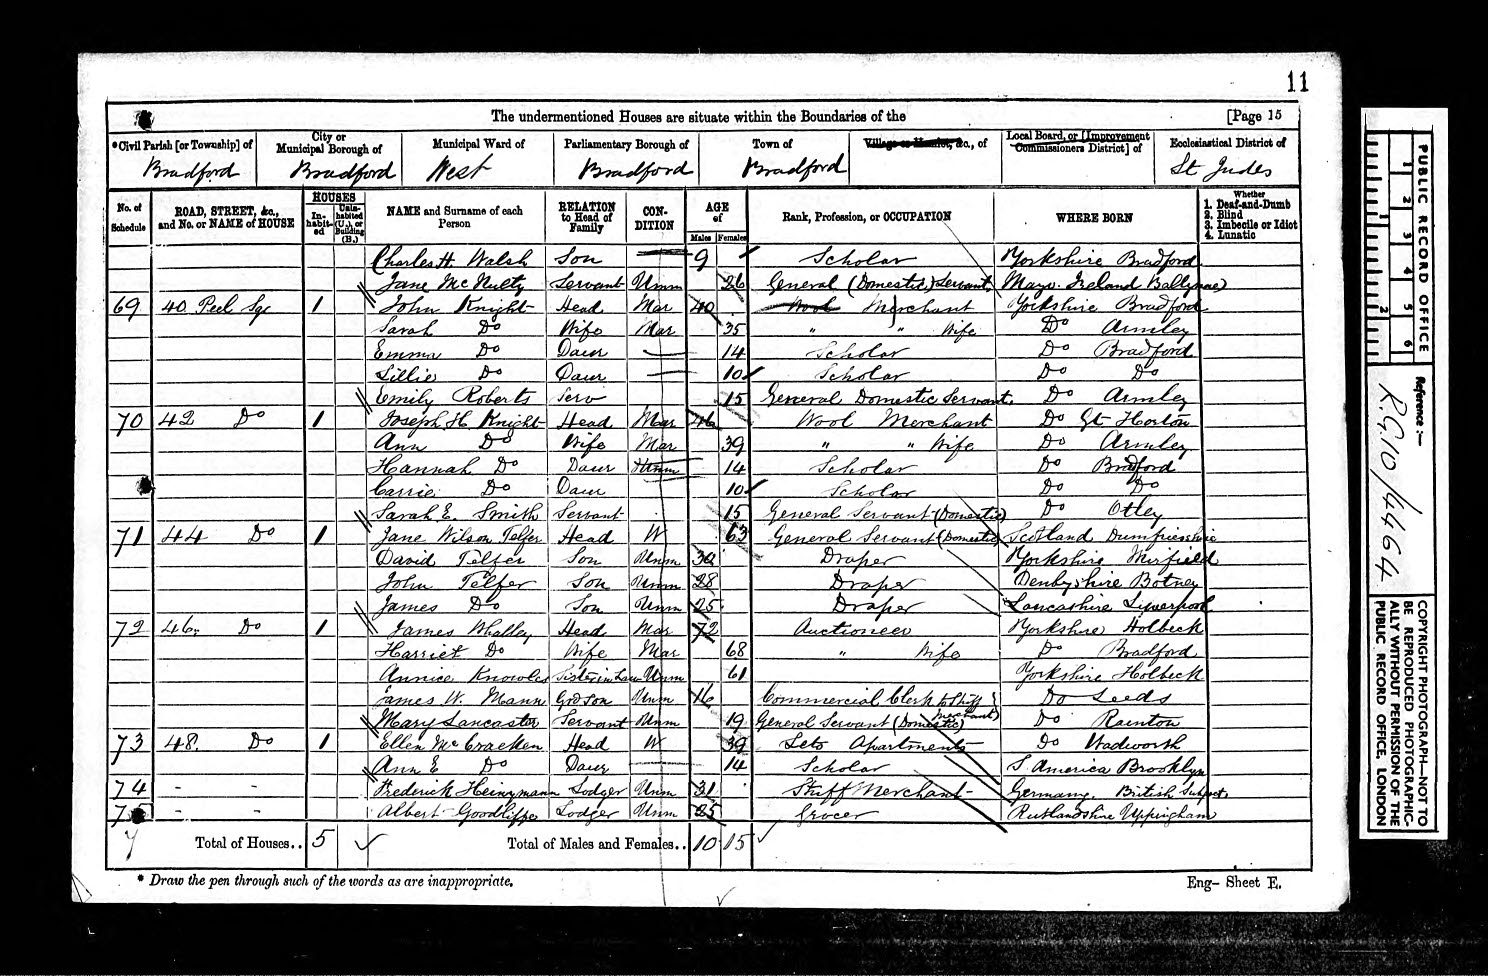 11
The undermentioned Houses are situate within the Boundaries of the [Page 15
*Civil Parish [or Township] of City or Municipal Borough of Municipal Ward of Parliamentary Borough of Town of Village or Hamlet, &c., of Local Board, or [Improvement Commissioners District] of Ecclesiastical District of
Bradford Bradford West Bradford Bradford St Judes
No. of Schedule ROAD, STREET, &c., and No. or NAME of HOUSE HOUSES Inhabited Uninhabited (U.), or Building (B.) NAME and Surname of each Person RELATION to Head of Family CONDITION AGE of Males Females Rank, Profession, or OCCUPATION WHERE BORN Whether 1. Deaf-and-Dumb 2. Blind 3. Imbecile or Idiot 4. Lunatic
Charles H. Walsh Son 9 Scholar Yorkshire Bradford
Jane McNulty Servant Unm 26 General (Domestic) Servant Mayo. Ireland
69 40 Peel Sqr 1 John Knight Head Mar 40 Wool Merchant Yorkshire Bradford
Sarah Do Wife Mar 35 " " Wife Do Armley
Emma Do Daur 14 Scholar Do Bradford
Lillie Do Daur 10 Scholar Do Do
Emily Roberts Serv 15 General Domestic Servant. Do Armley
70 42 Do 1 Joseph H. Knight Head Mar 46 Wool Merchant Do Gt Horton
Ann Do Wife Mar 39 " " Wife Do Armley
Hannah Do Daur Unm 14 Scholar Do Bradford
Carrie Do Daur 10 Scholar Do Do
Sarah E. Smith Servant 15 General Servant (Domestic) Do Otley
71 44 Do 1 Jane Wilson Telfer Head W 63 General Servant (Domestic) Scotland Dumfriesshire
David Telfer Son Unm 30 Draper Yorkshire Mirfield
John Telfer Son Unm 28 Draper Denbyshire Botney
James Do Son Unm 25 Draper Lancashire Liverpool
72 46. Do 1 James Whalley Head Mar 72 Auctioneer Yorkshire Holbeck
Harriet Do Wife Mar 68 " Wife Do Bradford
Annice Knowles Sister in Law Unm 61 Yorkshire Holbeck
James W. Mann GrdSon Unm 16 Commercial Clerk to Stuff Merchant Do Leeds
Mary Lancaster Servant Unm 19 General Servant (Domestic) Do Rainton
73 48. Do 1 Ellen McCracken Head W 39 Lets Apartments Do Wadworth
Ann E Do Daur 14 Scholar S. America Brooklyn
74 - - Frederick Heinzmann Lodger Unm 31 Stuff Merchant Germany. British Subject
75 - - Albert Goodliffe Lodger Unm 25 Grocer Rutlandshire Uppingham
7 Total of Houses.. 5 Total of Males and Females.. 10 15
* Draw the pen through such of the words as are inappropriate. Eng- Sheet E.
PUBLIC RECORD OFFICE
1 2 3 4 5 6
1 2
Reference :-
R.G.10/4464
COPYRIGHT PHOTOGRAPH-NOT TO
BE REPRODUCED PHOTOGRAPHIC-
ALLY WITHOUT PERMISSION OF THE
PUBLIC RECORD OFFICE, LONDON